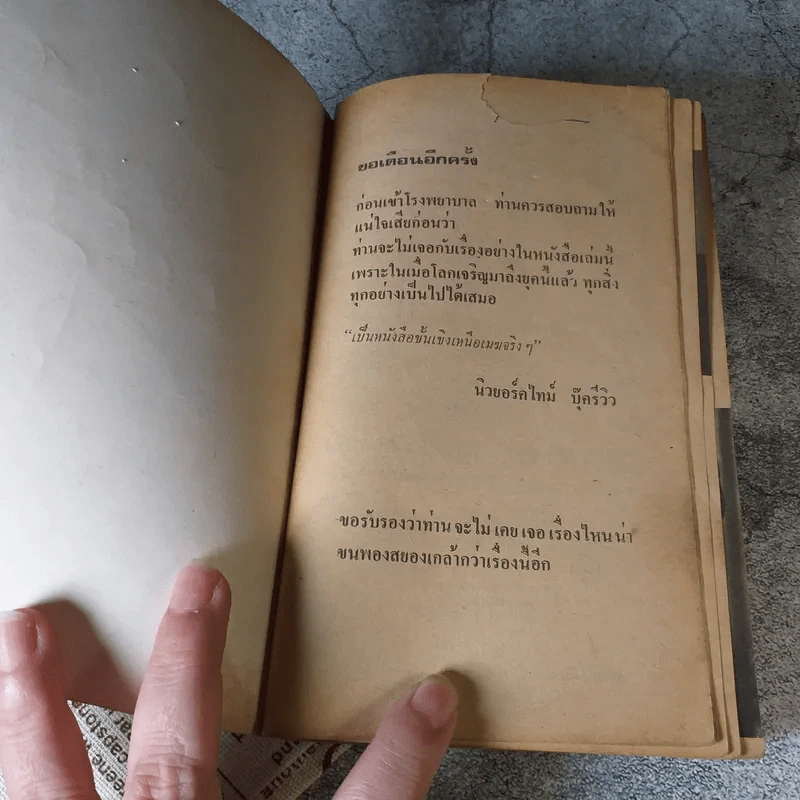 ขอเตือนอีกครั้ง
ก่อนเข้าโรงพยาบาล ท่านควรสอบถามให้
แน่ใจเสียก่อนว่า
ท่านจะไม่เจอกับเรื่องอย่างในหนังสือเล่มนี้
เพราะในเมื่อโลกเจริญมาถึงยุคนี้แล้ว ทุกสิ่ง
ทุกอย่างเป็นไปได้เสมอ
“เป็นหนังสือชั้นเชิงเหนือเมฆจริง ๆ”
นิวยอร์คไทม์ บุ๊ครีวิว
ขอรับรองว่าท่าน จะไม่ เคย เจอ เรื่องไหน น่า
ขนพองสยองเกล้ากว่าเรื่องนี้อีก
capstone
and